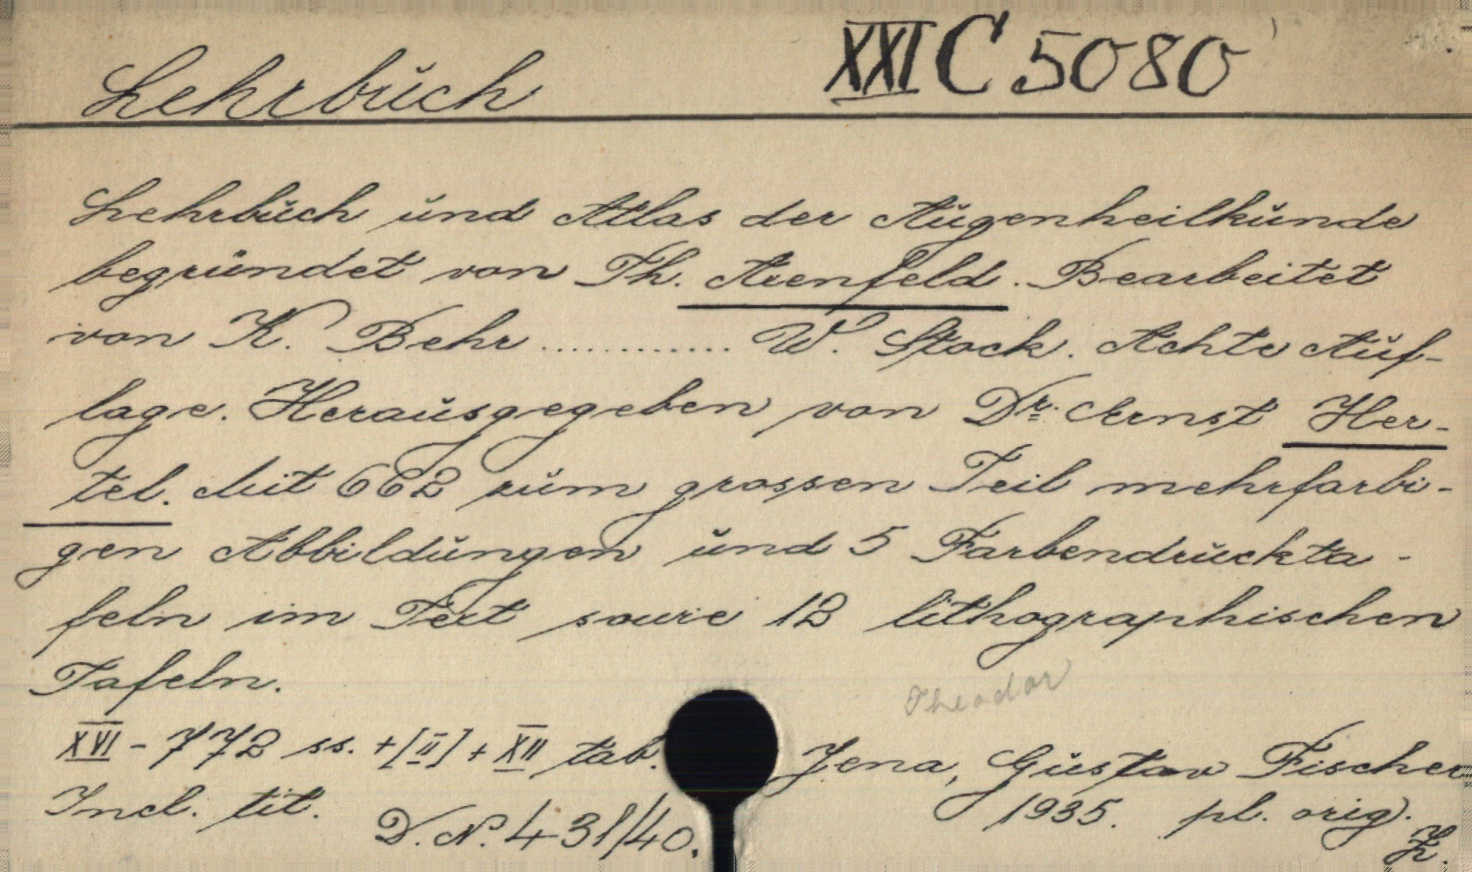 Lehrbuch XXI C 5080
Lehrbuch und Atlas der Augenheilkunde
begründet von Th. Axenfeld. Bearbeitet
von K. Behr ............ W. Stock. Achte Auf-
lage. Herausgegeben von Dr. Ernst Her-
tel. Mit 662 zum grossen Teil mehrfarbi-
gen Abbildungen und 5 Farbendruckta-
feln im Text sowie 12 lithographischen
Tafeln.
Theodor
XVI - 772 ss. + [II] + XII tab. Jena, Gustav Fischer
Incl. tit. 1935. pl. orig.
D. N. 431/40.